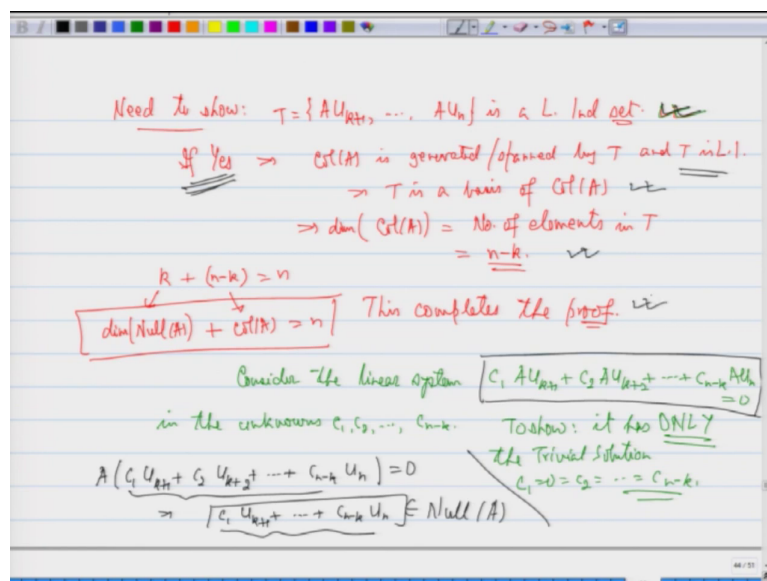 Need to show: T = {AU_{k+1}, ..., AU_n} is a L. Ind set.
If Yes ⇒ Col(A) is generated/spanned by T and T is L.I.
⇒ T is a basis of Col(A)
⇒ dim(Col(A)) = No. of elements in T
= n-k.
k + (n-k) = n
dim(Null(A)) + Col(A) = n This completes the proof.
Consider the linear system C_1 AU_{k+1} + C_2 AU_{k+2} + ... + C_{n-k} AU_n = 0
in the unknowns C_1, C_2, ..., C_{n-k}. To show: it has ONLY
the Trivial Solution
C_1 = 0 = C_2 = ... = C_{n-k}.
A(C_1 U_{k+1} + C_2 U_{k+2} + ... + C_{n-k} U_n) = 0
⇒ C_1 U_{k+1} + ... + C_{n-k} U_n ∈ Null(A)
44/51